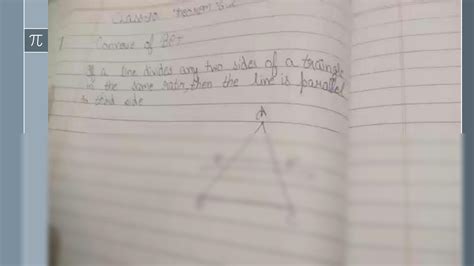 π
Theorem
1 Converse of BPT
If a line divides any two sides of a triangle
in the same ratio, then the line is parallel
to third side
A